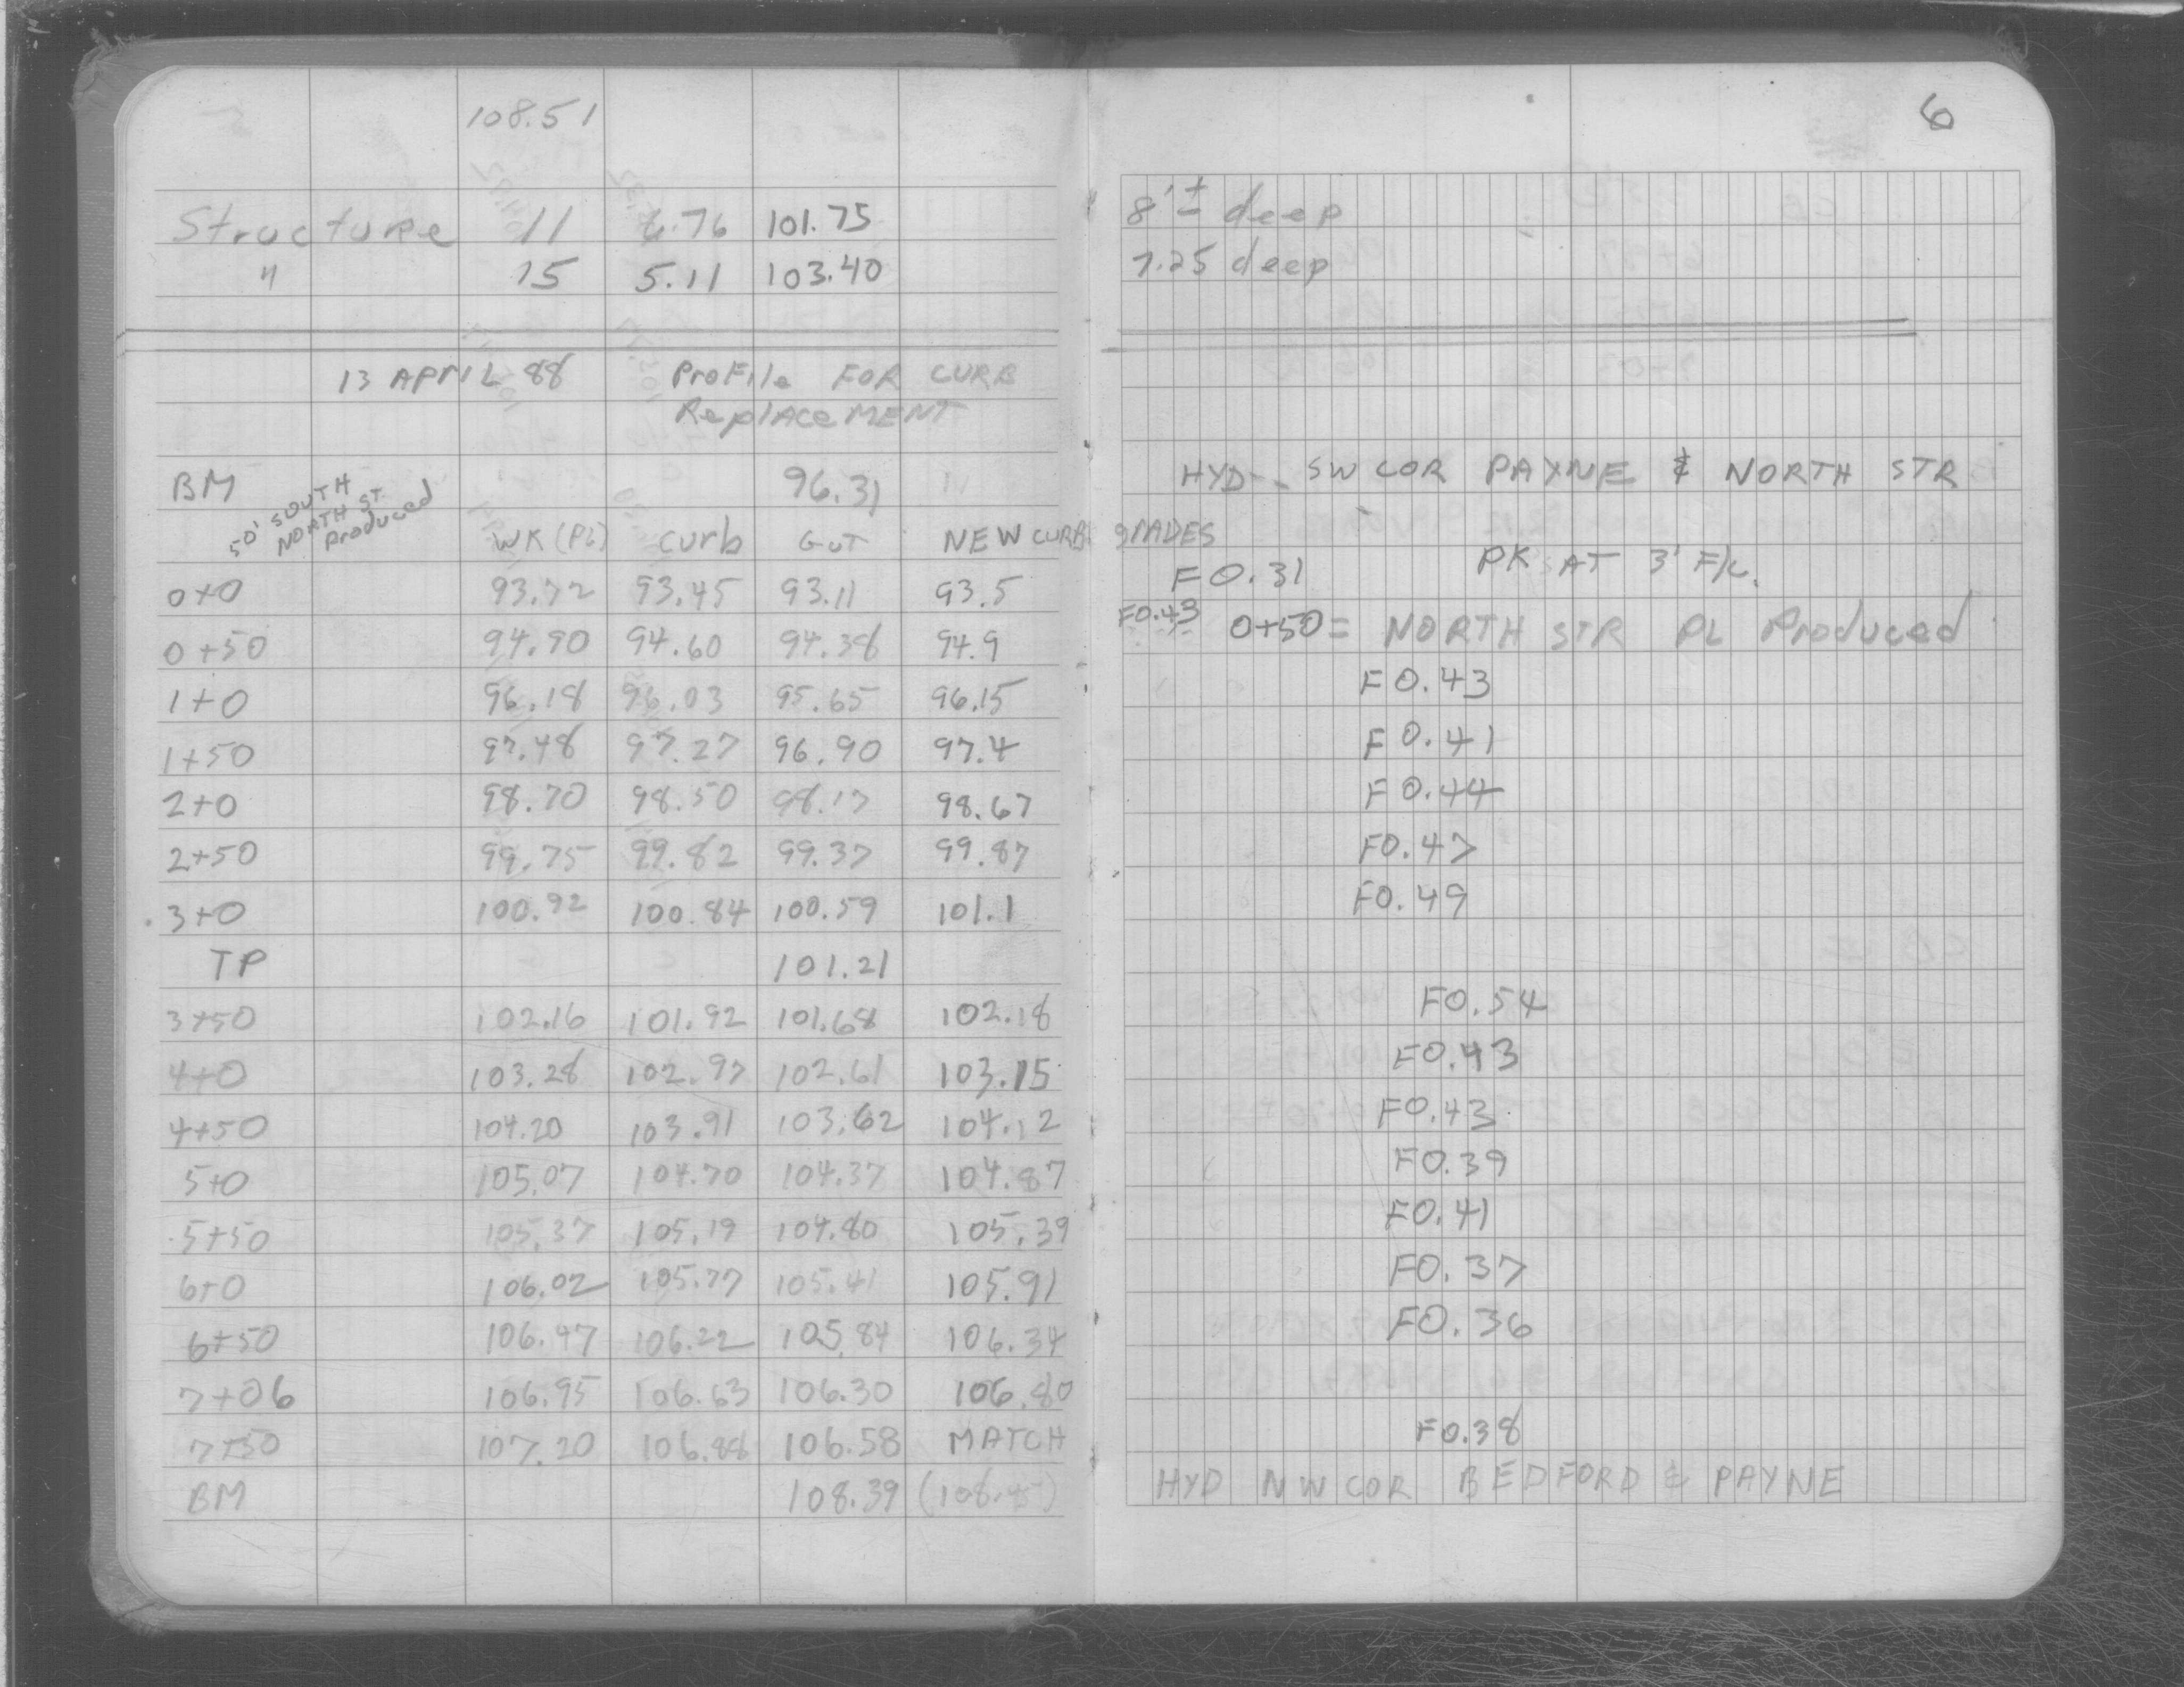 6
108.51
Structure 11 6.76 101.75 8'± deep
" 15 5.11 103.40 7.25 deep
13 APRIL 88 Profile FOR CURB
ReplACeMENT
BM 96.31 HYD - SW COR PAYNE & NORTH STR
50' SOUTH
NORTH ST.
Produced
WK (PL) curb GUT NEW CURB GRADES
0+0 93.72 93.45 93.11 93.5 F0.31 PK AT 3' F/C.
0+50 94.90 94.60 94.38 94.9 F0.43 0+50 = NORTH STR PL Produced
1+0 96.18 96.03 95.65 96.15 F0.43
1+50 97.48 97.27 96.90 97.4 F0.41
2+0 98.70 98.50 98.17 98.67 F0.44
2+50 99.75 99.82 99.37 99.87 F0.47
3+0 100.92 100.84 100.59 101.1 F0.49
TP 101.21
3+50 102.16 101.92 101.68 102.18 F0.54
4+0 103.28 102.97 102.61 103.15 F0.43
4+50 104.20 103.91 103.62 104.12 F0.43
5+0 105.07 104.70 104.37 104.87 F0.39
5+50 105.37 105.19 104.80 105.39 F0.41
6+0 106.02 105.77 105.41 105.91 F0.37
6+50 106.47 106.22 105.84 106.34 F0.36
7+06 106.95 106.63 106.30 106.80
7+50 107.20 106.88 106.58 MATCH F0.38
BM 108.39 HYD NW COR BEDFORD & PAYNE